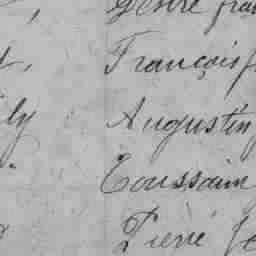 Désiré fra
François f
ly Augustin
Toussain
Pierre Je